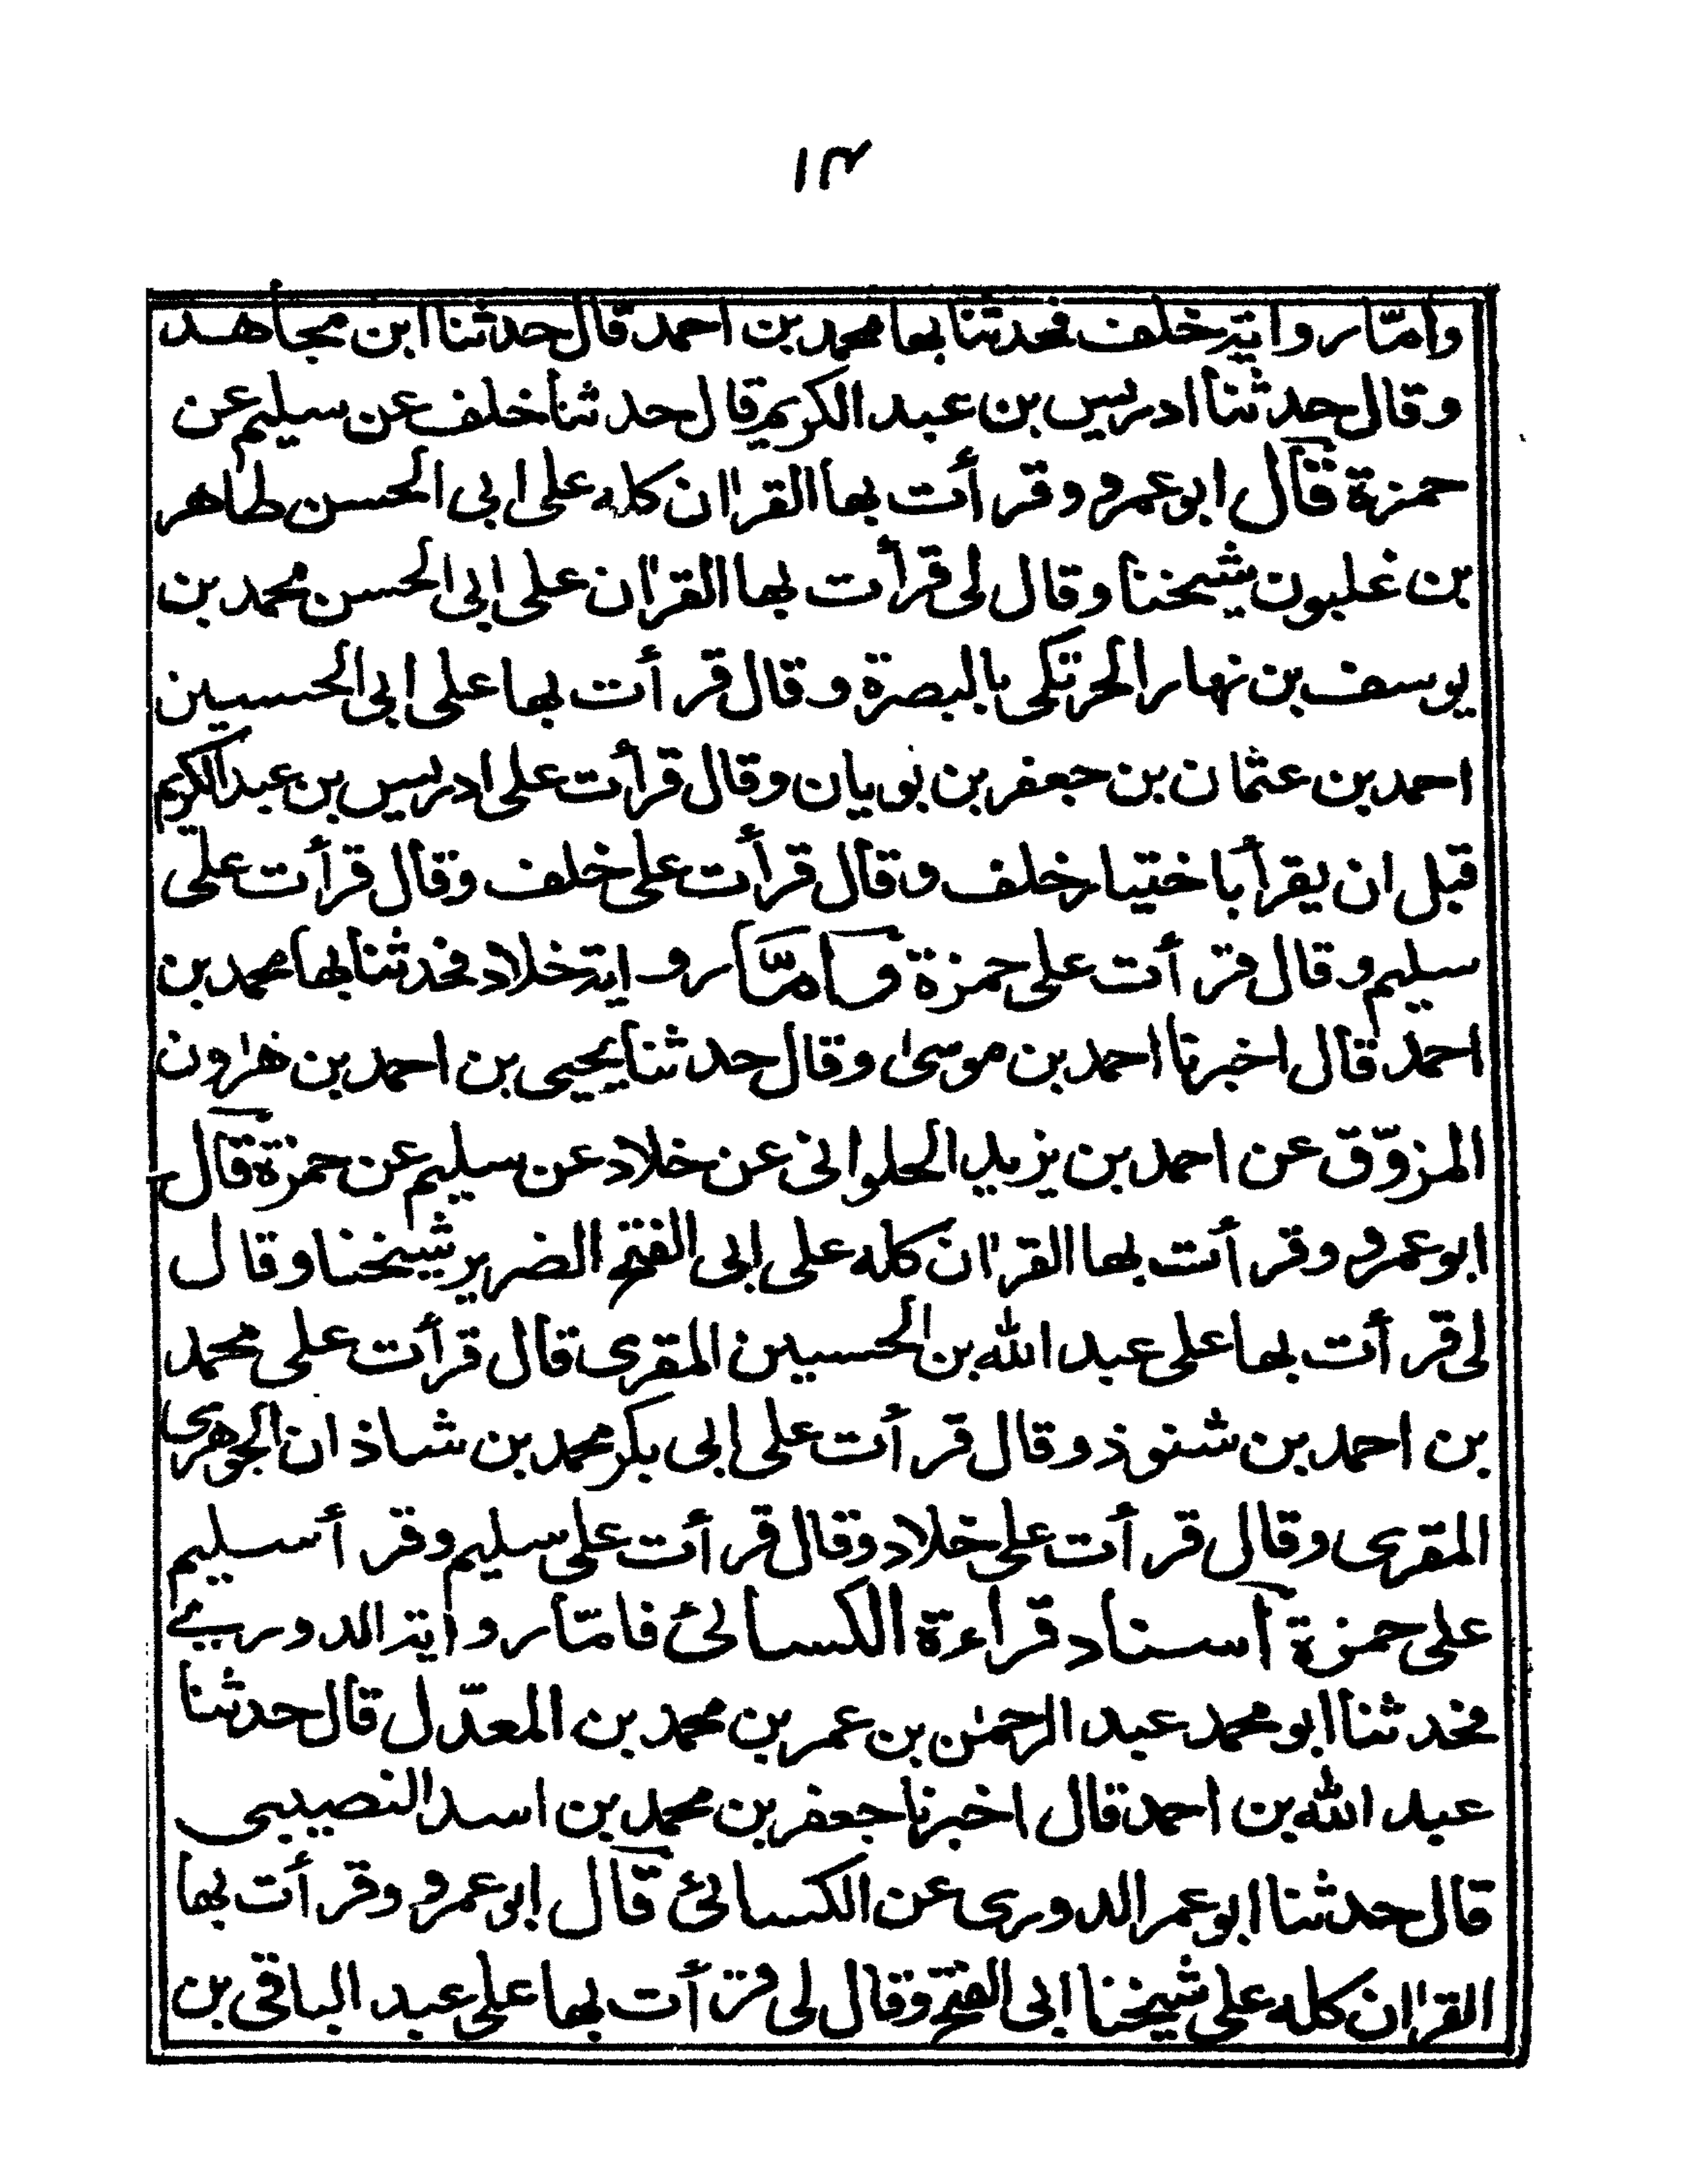 ١٣
وامّا رواية خلف فحدثنا بها محمد بن احمد قال حدثنا ابن مجاهد
وقال حدثنا ادريس بن عبد الكريم قال حدثنا خلف عن سليم عن
حمزة قال ابو عمرو وقرأت بها القرٰان كله على ابى الحسن طاهر
بن غلبون شيخنا وقال لى قرأت بها القرٰان على ابى الحسن محمد بن
يوسف بن نهار الحرتكى بالبصرة وقال قرأت بها على ابى الحسين
احمد بن عثمان بن جعفر بن بويان وقال قرأت على ادريس بن عبد الكريم
قبل ان يقرأ باختيار خلف وقال قرأت على خلف وقال قرأت على
سليم وقال قرأت على حمزة وامَّا رواية خلاد فحدثنا بها محمد بن
احمد قال اخبرنا احمد بن موسىٰ وقال حدثنا يحيى بن احمد بن هٰرون
المزوّق عن احمد بن يزيد الحلوانى عن خلاد عن سليم عن حمزة قال
ابو عمرو وقرأت بها القرٰان كله على ابى الفتح الضرير شيخنا وقال
لى قرأت بها على عبد الله بن الحسين المقرى قال قرأت على محمد
بن احمد بن شنبوذ وقال قرأت على ابى بكر محمد بن شاذان الجوهرى
المقرى وقال قرأت على خلاد وقال قرأت على سليم وقرأ سليم
على حمزة اسناد قراءة الكسائى فامّا رواية الدورى
فحدثنا ابو محمد عبد الرحمٰن بن عمر بن محمد بن المعدّل قال حدثنا
عبد الله بن احمد قال اخبرنا جعفر بن محمد بن اسد النصيبى
قال حدثنا ابو عمر الدورى عن الكسائى قال ابو عمرو وقرأت بها
القرٰان كله على شيخنا ابى الفتح وقال لى قرأت بها على عبد الباقى بن